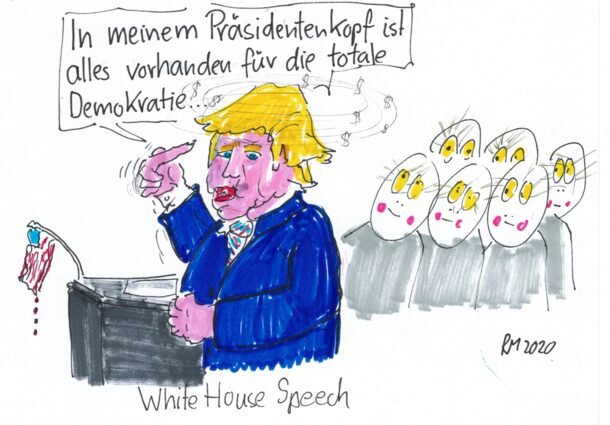 In meinem Präsidentenkopf ist
alles vorhanden für die totale
Demokratie...
$ $ $ $ $ $ $
RM 2020
White House Speech